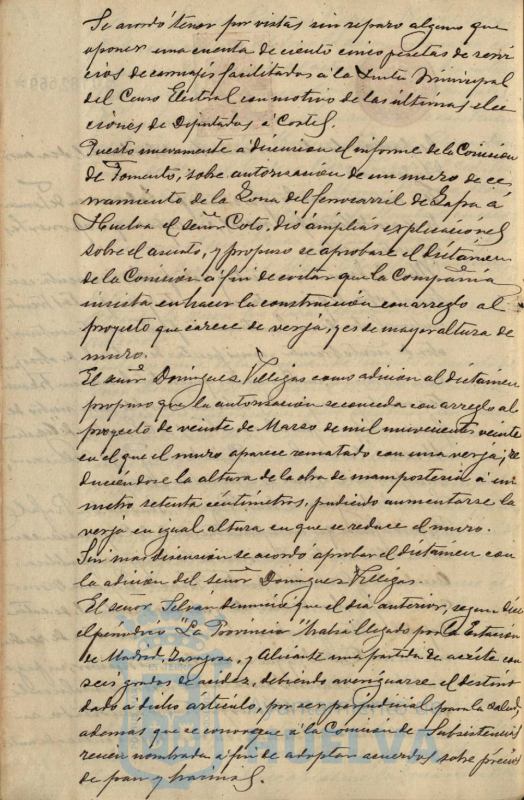 Se acordó tener por vistas sin reparo alguno que
oponer una cuenta de ciento cinco pesetas de servi
cios de carruajes facilitados á la Junta Municipal
del Censo Electoral con motivo de las últimas elec
ciones de Diputados á Cortes.
Puesto nuevamente á discusion el informe de la Comision
de Fomento, sobre autorizacion de un muro de ce
rramiento de la Zona del ferrocarril de Zafra á
Huelva el señor Coto, dió ámplias explicaciones
sobre el asunto, y propuso se aprobase el dictámen
de la Comisión á fin de evitar que la Compañia
insista en hacer la construcción con arreglo al
proyecto que carece de verja, y es de mayor altura de
muro.
El señor Dominguez Villegas como adicion al dictámen
propuso que la autorizacion se conceda con arreglo al
proyecto de veinte de Marzo de mil nuevecientos veinte
en el que el muro aparece rematado con una verja; re
duciéndose la altura de la obra de mamposteria á un
metro setenta céntimetros, pudiendo aumentarse la
verja en igual altura en que se reduce el muro.
Sin mas discusion se acordó aprobar el dictámen con
la adicion del señor Dominguez Villegas.
El señor Selván denunció que el dia anterior, segun dice
el periódico "La Provincia" habia llegado por la Estación
de Madrid, Zaragoza, y Alicante una partida de aceite con
seis grados de acidéz, debiendo averiguarse el destino
dado á dicho artículo, por ser perjudicial para la salud,
ademas que se convoque á la Comisión de Subsistencias
recien nombrada á fin de adoptar acuerdos sobre précios
de pan y harinas.
HUELVA